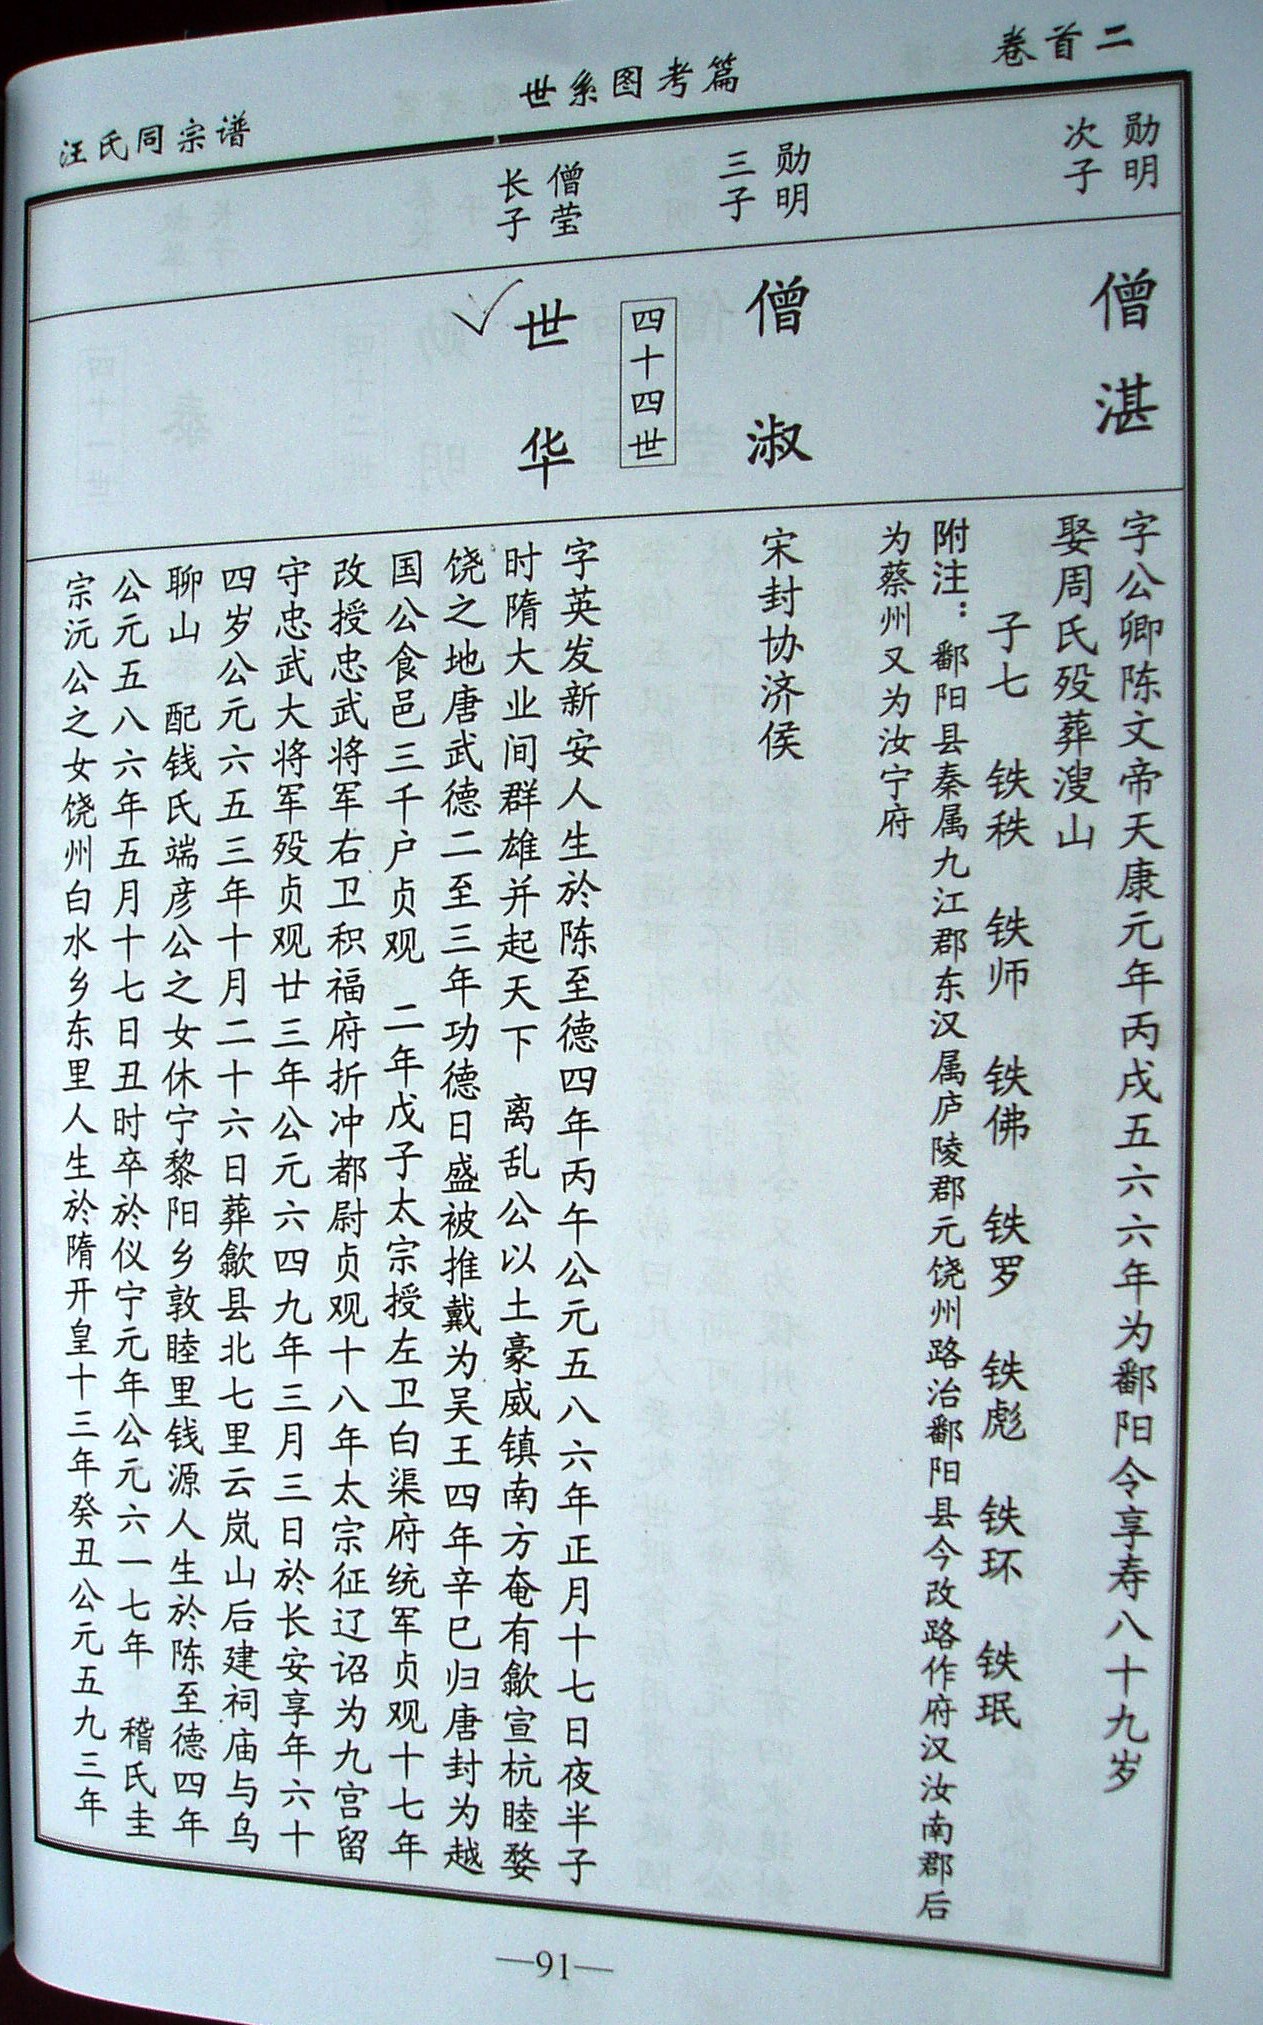 卷首二
世系图考篇
汪氏同宗谱
勋明
次子
僧湛
字公卿陈文帝天康元年丙戌五六六年为鄱阳令享寿八十九岁
娶周氏殁葬溲山
子七 铁秩 铁师 铁佛 铁罗 铁彪 铁环 铁珉
附注：鄱阳县秦属九江郡东汉属庐陵郡元饶州路治鄱阳县今改路作府汉汝南郡后
为蔡州又为汝宁府
勋明
三子
僧淑
宋封协济侯
四十四世
僧莹
长子
世华
字英发新安人生於陈至德四年丙午公元五八六年正月十七日夜半子
时隋大业间群雄并起天下 离乱公以土豪威镇南方奄有歙宣杭睦婺
饶之地唐武德二至三年功德日盛被推戴为吴王四年辛巳归唐封为越
国公食邑三千户贞观 二年戊子太宗授左卫白渠府统军贞观十七年
改授忠武将军右卫积福府折冲都尉贞观十八年太宗征辽诏为九宫留
守忠武大将军殁贞观廿三年公元六四九年三月三日於长安享年六十
四岁公元六五三年十月二十六日葬歙县北七里云岚山后建祠庙与乌
聊山 配钱氏端彦公之女休宁黎阳乡敦睦里钱源人生於陈至德四年
公元五八六年五月十七日丑时卒於仪宁元年公元六一七年 稽氏圭
宗沅公之女饶州白水乡东里人生於隋开皇十三年癸丑公元五九三年
—91—